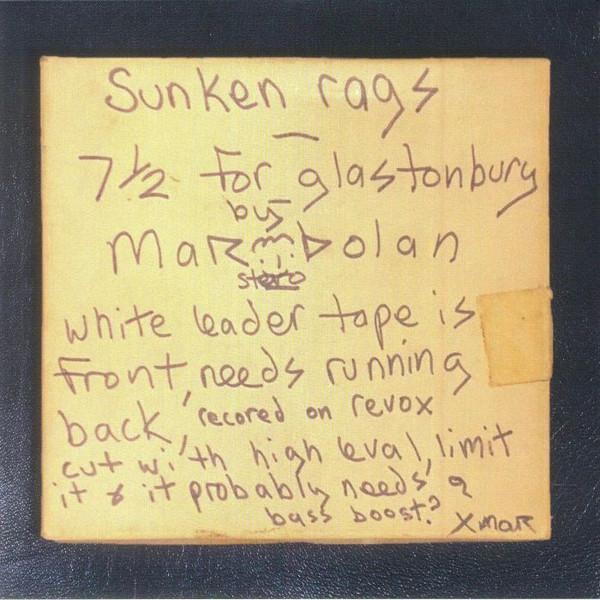 Sunken rags
7½ for glastonbury
by
Marc Bolan
stereo
white leader tape is
front, needs running
back, recored on revox
cut with high leval, limit
it & it probably needs a
bass boost? X mar